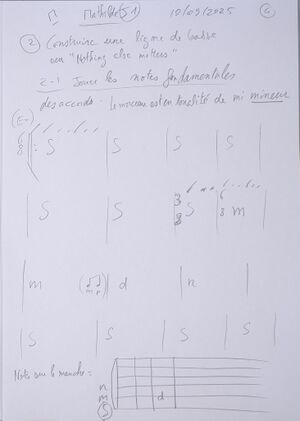 Mathilde (S1) 10/09/2025 4
2 Construire une ligne de basse
sur "Nothing else matters"
2-1 Jouer les notes fondamentales
des accords : le morceau est en tonalité de mi mineur
(E-)
6 8 : S | S | S | S |
| S | S | 3 8 S | 6 8 m |
| m | d | n |
| S | S | S | S | S
Notes sur le manche :
n
m
S d